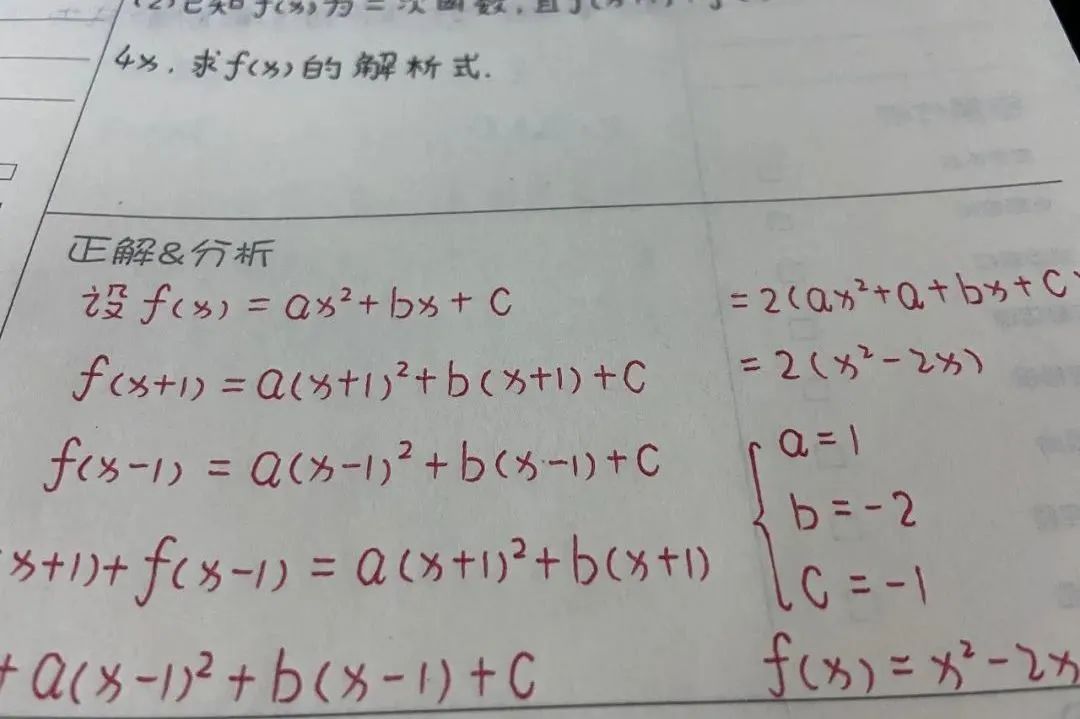 (2)已知f(x)为二次函数,且f(x+1)+f
4x,求f(x)的解析式.
正解&分析
设f(x)=ax²+bx+c
f(x+1)=a(x+1)²+b(x+1)+c
f(x-1)=a(x-1)²+b(x-1)+c
x+1)+f(x-1)=a(x+1)²+b(x+1)
+a(x-1)²+b(x-1)+c
=2(ax²+a+bx+c)
=2(x²-2x)
a=1
b=-2
c=-1
f(x)=x²-2x